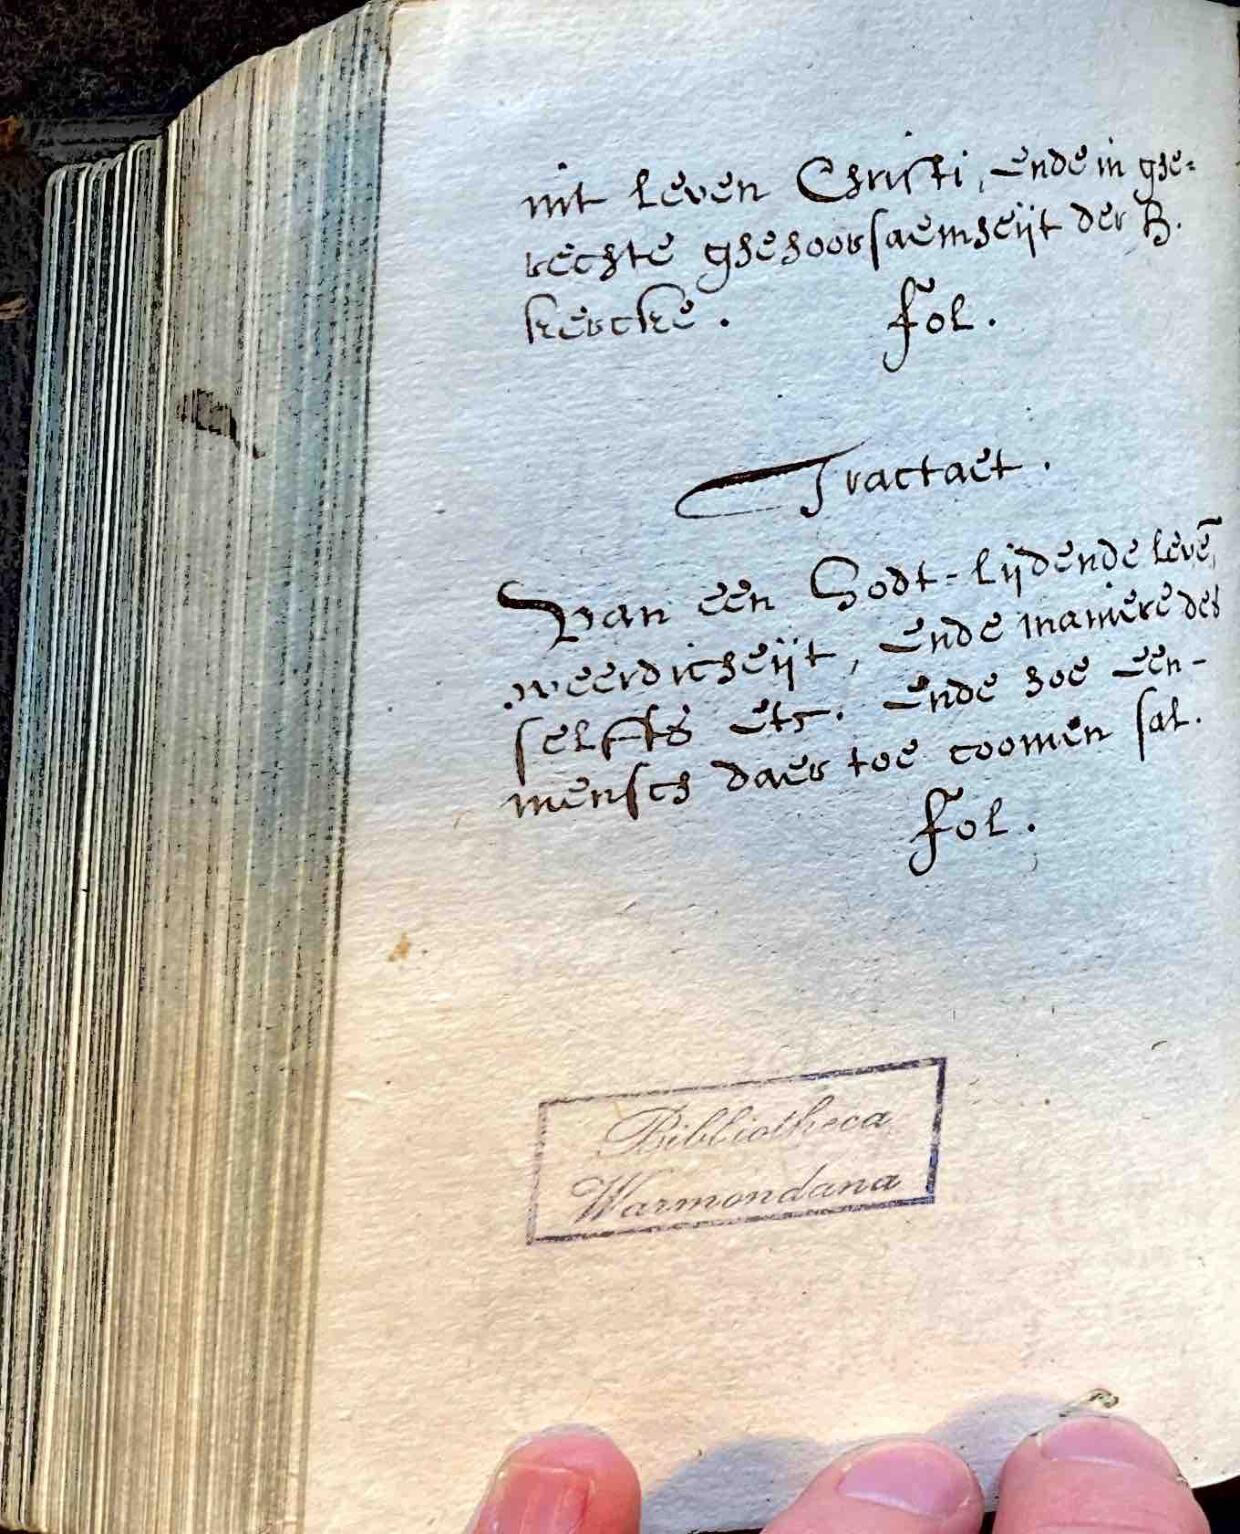 int leven Christi, ende in ghe=
rechte ghehoorsaemheijt der H.
kercke. fol.
Tractaet.
Van een Godt-lijdende levē,
weerdicheijt, ende maniere des
selfts etc. ende hoe een-
mensch daer toe coomen sal.
fol.
Bibliotheca
Warmondana